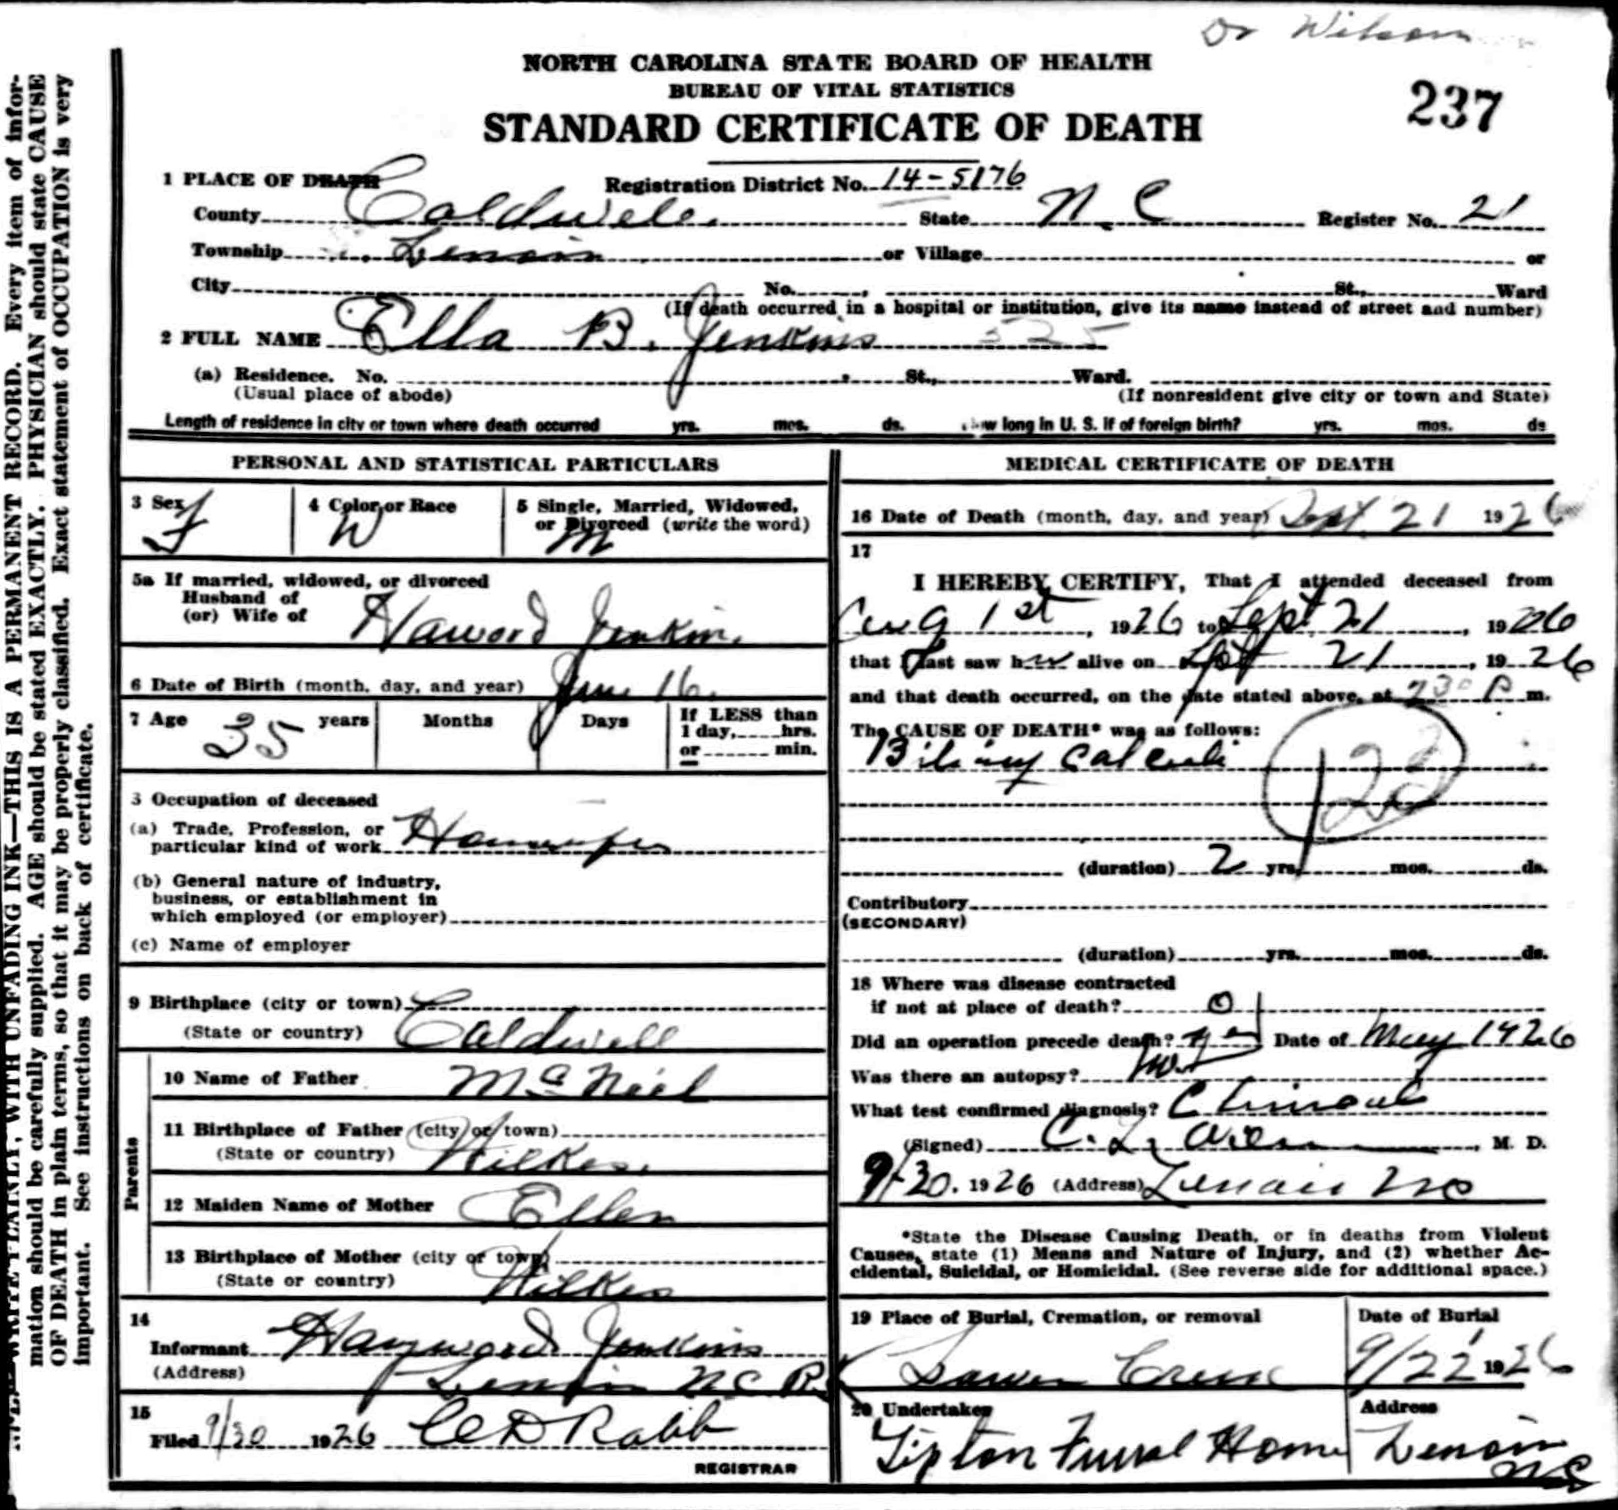 Dr Wilson
NORTH CAROLINA STATE BOARD OF HEALTH
BUREAU OF VITAL STATISTICS
STANDARD CERTIFICATE OF DEATH
237
1 PLACE OF DEATH
Registration District No. 14-5176
County Caldwell State N.C Register No. 21
Township Lenoir or Village or
City No. , St., Ward
(If death occurred in a hospital or institution, give its name instead of street and number)
2 FULL NAME Ella B. Jenkins
(a) Residence. No. , St., Ward.
(Usual place of abode) (If nonresident give city or town and State)
Length of residence in city or town where death occurred yrs. mos. ds. How long in U. S. if of foreign birth? yrs. mos. ds
PERSONAL AND STATISTICAL PARTICULARS
3 Sex F
4 Color or Race W
5 Single, Married, Widowed,
or Divorced (write the word)
M
5a If married, widowed, or divorced
Husband of
(or) Wife of Haword Jenkins
6 Date of Birth (month, day, and year) June 16.
7 Age 35 years Months Days
If LESS than
1 day, hrs.
or min.
3 Occupation of deceased
(a) Trade, Profession, or
particular kind of work
(b) General nature of industry,
business, or establishment in
which employed (or employer)
(c) Name of employer
9 Birthplace (city or town)
(State or country) Caldwell
Parents
10 Name of Father McNeil
11 Birthplace of Father (city or town)
(State or country) Wilkes.
12 Maiden Name of Mother Ellen
13 Birthplace of Mother (city or town)
(State or country) Wilkes
14
Informant Hayword Jenkins
(Address) Lenoir N.C. R
15
Filed 9/30 1926 C D Rabb
REGISTRAR
MEDICAL CERTIFICATE OF DEATH
16 Date of Death (month, day, and year) Sept 21 1926
17
I HEREBY CERTIFY, That I attended deceased from
Aug 1st, 1926 to Sept 21, 1926
that I last saw her alive on Sept 21, 1926
and that death occurred, on the date stated above, at 230 P m.
The CAUSE OF DEATH* was as follows:
Biliary Calculi
123
(duration) 2 yrs. mos. ds.
Contributory
(SECONDARY)
(duration) yrs. mos. ds.
18 Where was disease contracted
if not at place of death? 0
Did an operation precede death? yes Date of May 1926
Was there an autopsy? No
What test confirmed diagnosis? Clinical
(Signed) C. L. , M. D.
9/30. 1926 (Address) Lenoir NC
*State the Disease Causing Death, or in deaths from Violent
Causes, state (1) Means and Nature of Injury, and (2) whether Ac-
cidental, Suicidal, or Homicidal. (See reverse side for additional space.)
19 Place of Burial, Cremation, or removal
Date of Burial
9/22 1926
20 Undertaker
Address
Tipton Funral Home Lenoir
NC
WRITE PLAINLY, WITH UNFADING INK—THIS IS A PERMANENT RECORD. Every item of infor-
mation should be carefully supplied. AGE should be stated EXACTLY. PHYSICIAN should state CAUSE
OF DEATH in plain terms, so that it may be properly classified. Exact statement of OCCUPATION is very
important. See instructions on back of certificate.